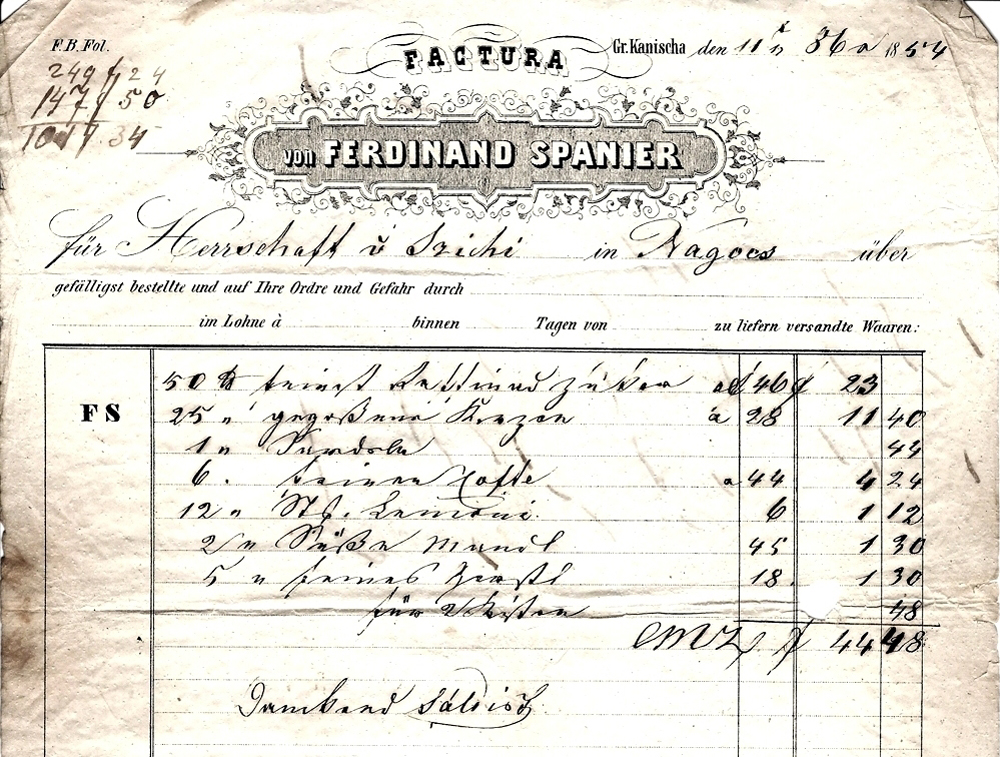 F.B. Fol.
FACTURA
Gr. Kanischa den 11 1854
249 f 24
147 f 50
34
von FERDINAND SPANIER
für Herrschaft v Szichi in Nagocs über
gefälligst bestellte und auf Ihre Ordre und Gefahr durch
im Lohne à binnen Tagen von zu liefern versandte Waaren:
50 ℔ feinst Raffinad Zuker 46 f 23
FS
25 " gegoßene Kerzen à 28 11 40
1 " Sardeln 44
6 . feinen Caffe a 44 4 24
12 " Stk. Lemoni 6 1 12
2 " Süße Mandl 45 1 30
5 " feines Gerstl 18 1 30
für 2 Kisten 48
CMZ f 44 48
Dankend Saldirt